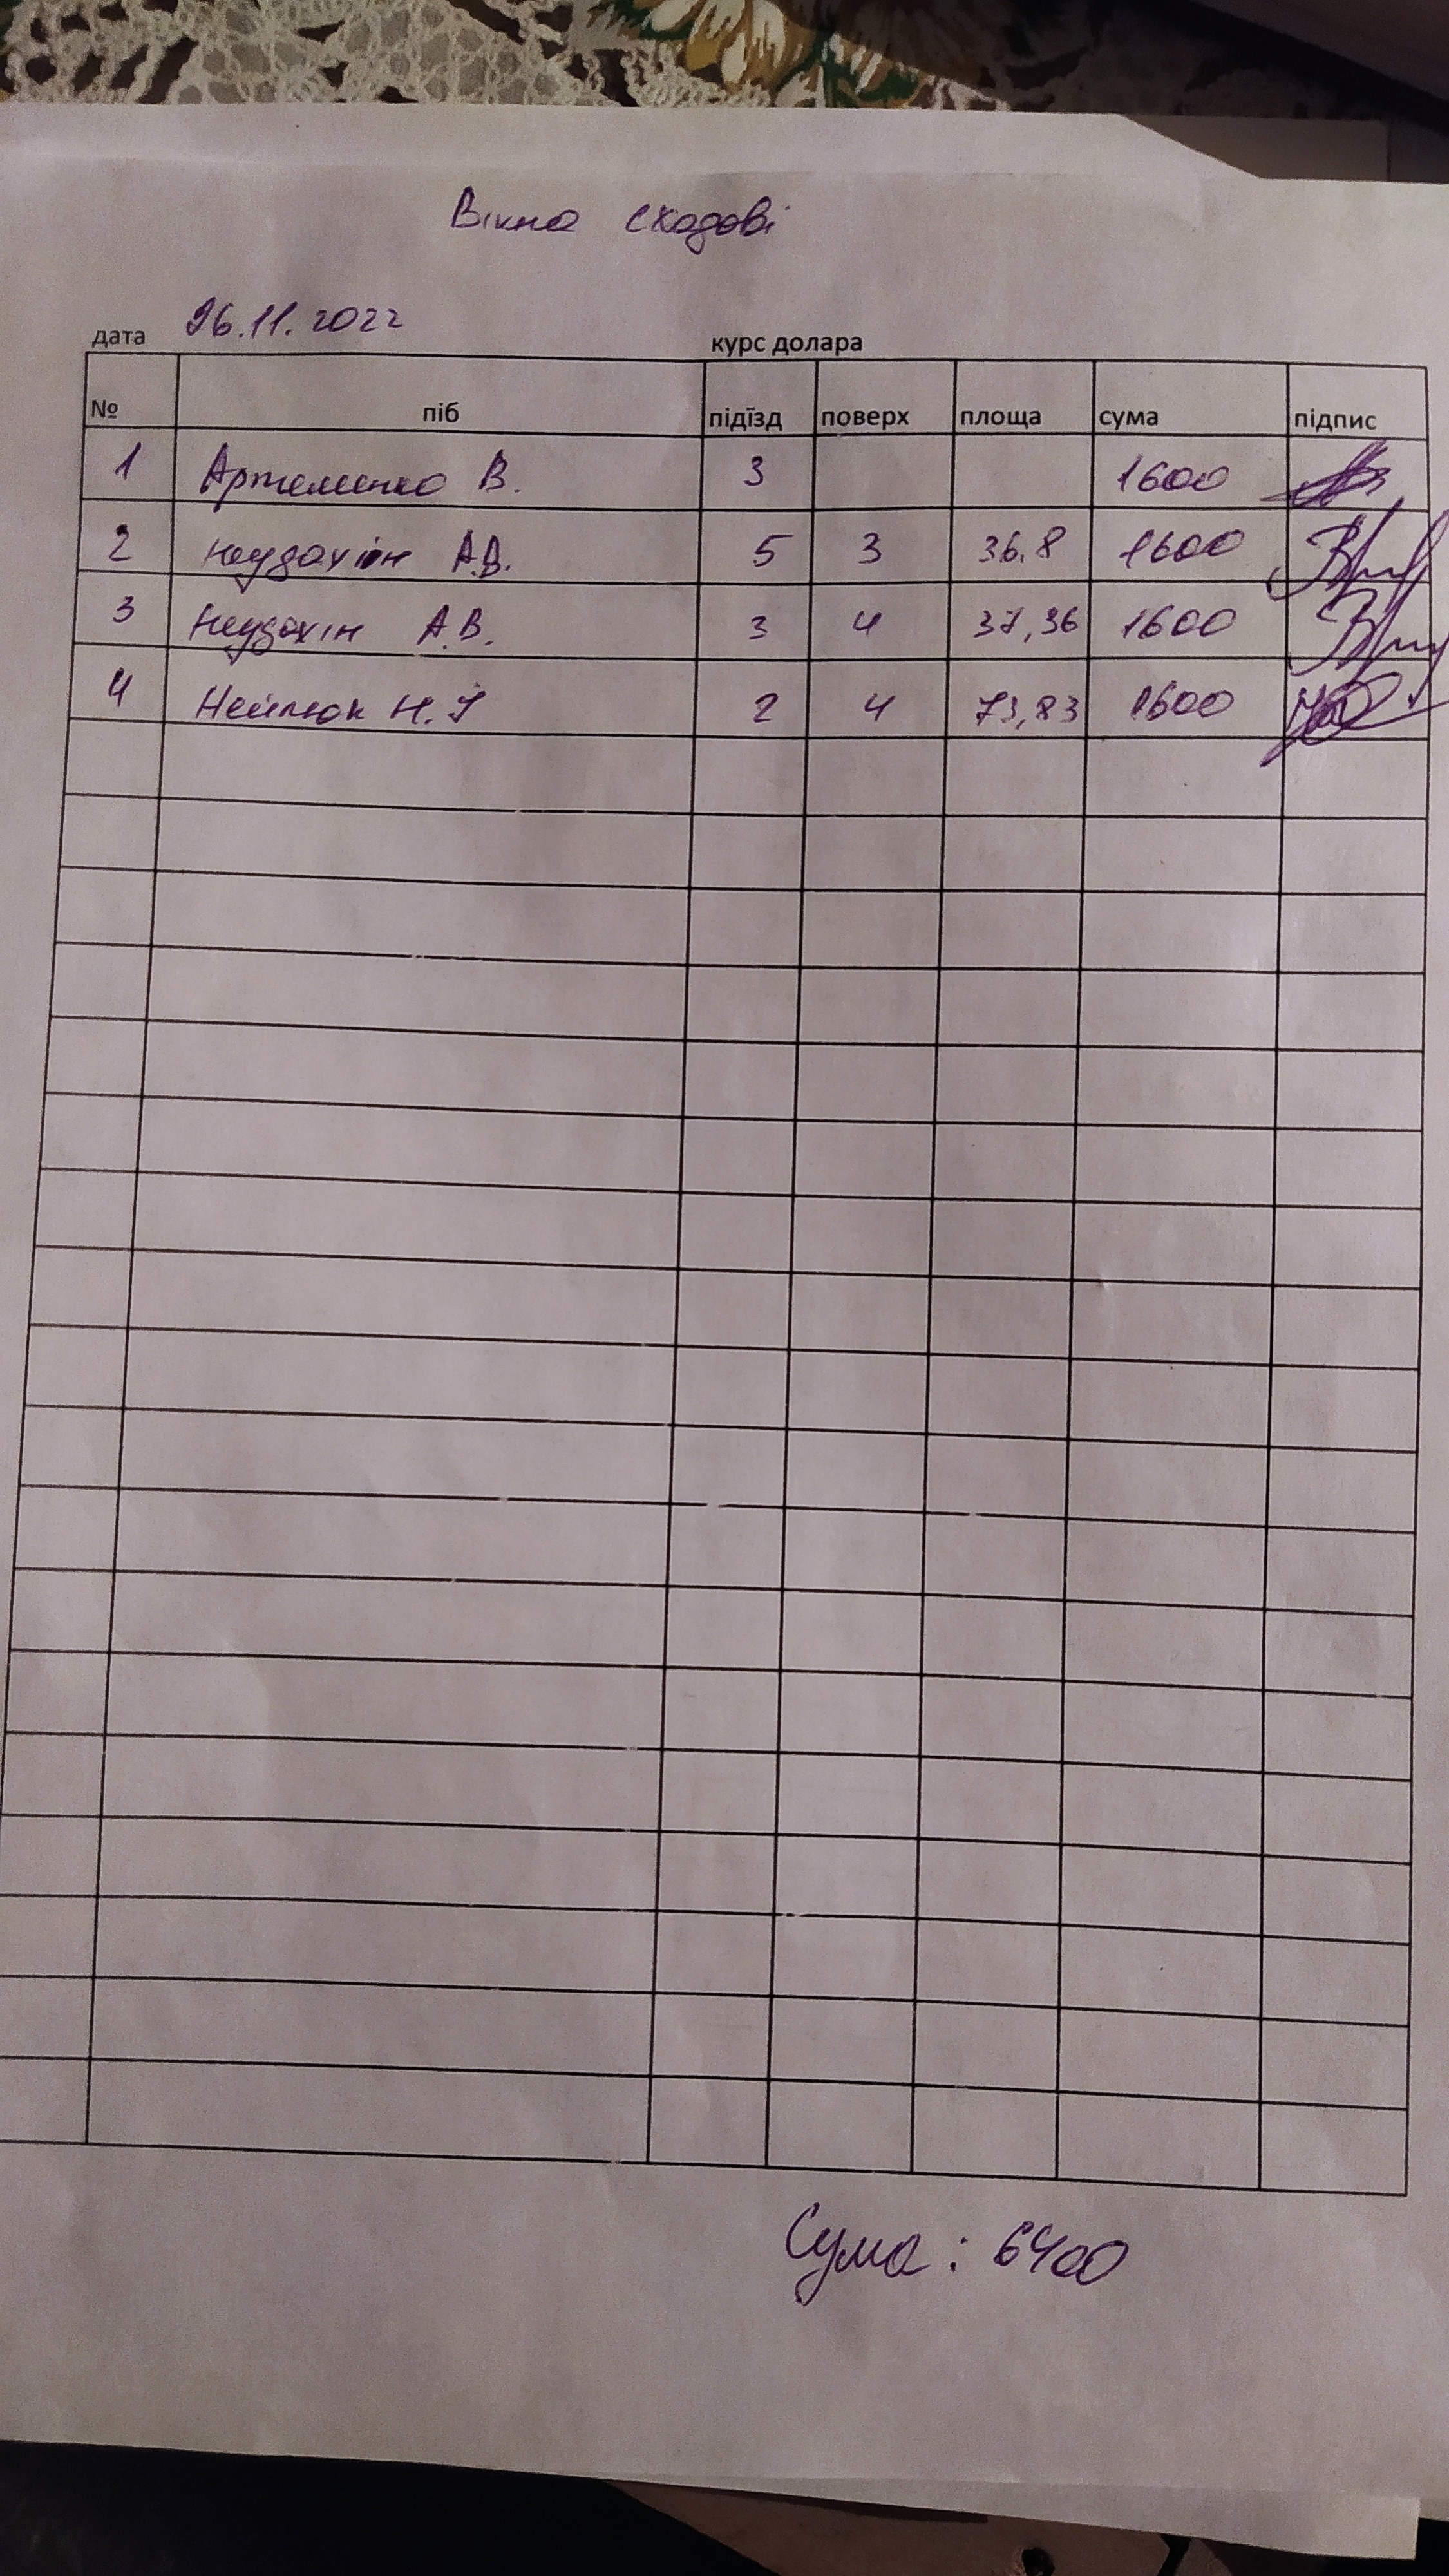 Вікна сходові
дата 06.11.2022 курс долара
№ піб підїзд поверх площа сума підпис
1 Артеменко В. 3 1600
2 А.В. 5 3 36,8 1600
3 А.В. 3 4 37,36 1600
4 Н. 2 4 73,83 1600
Сума: 6400